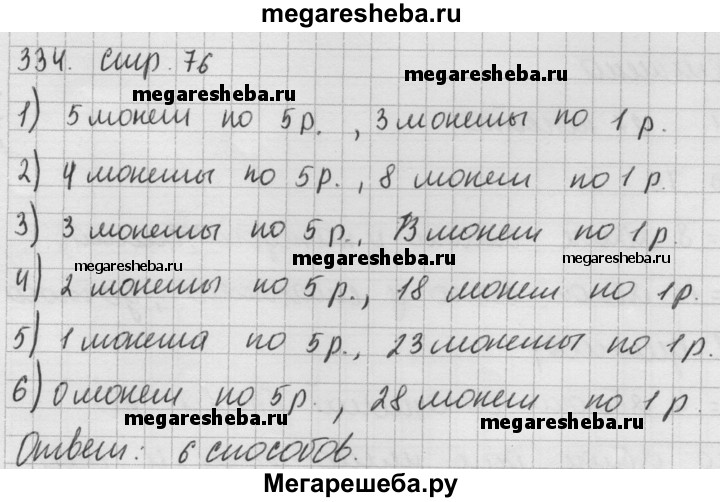 megaresheba.ru
334. стр. 76
megaresheba.ru
megaresheba.ru
1) 5 монет по 5 р. , 3 монеты по 1 р.
2) 4 монеты по 5 р. , 8 монет по 1 р.
3) 3 монеты по 5 р., 13 монет по 1 р.
megaresheba.ru
megaresheba.ru
megaresheba.ru
4) 2 монеты по 5 р., 18 монет по 1 р.
5) 1 монета по 5 р., 23 монеты по 1 р.
6) 0 монет по 5 р. , 28 монет по 1 р.
megaresheba.ru
megaresheba.ru
Ответ: 6 способов.
Мегарешеба.ру